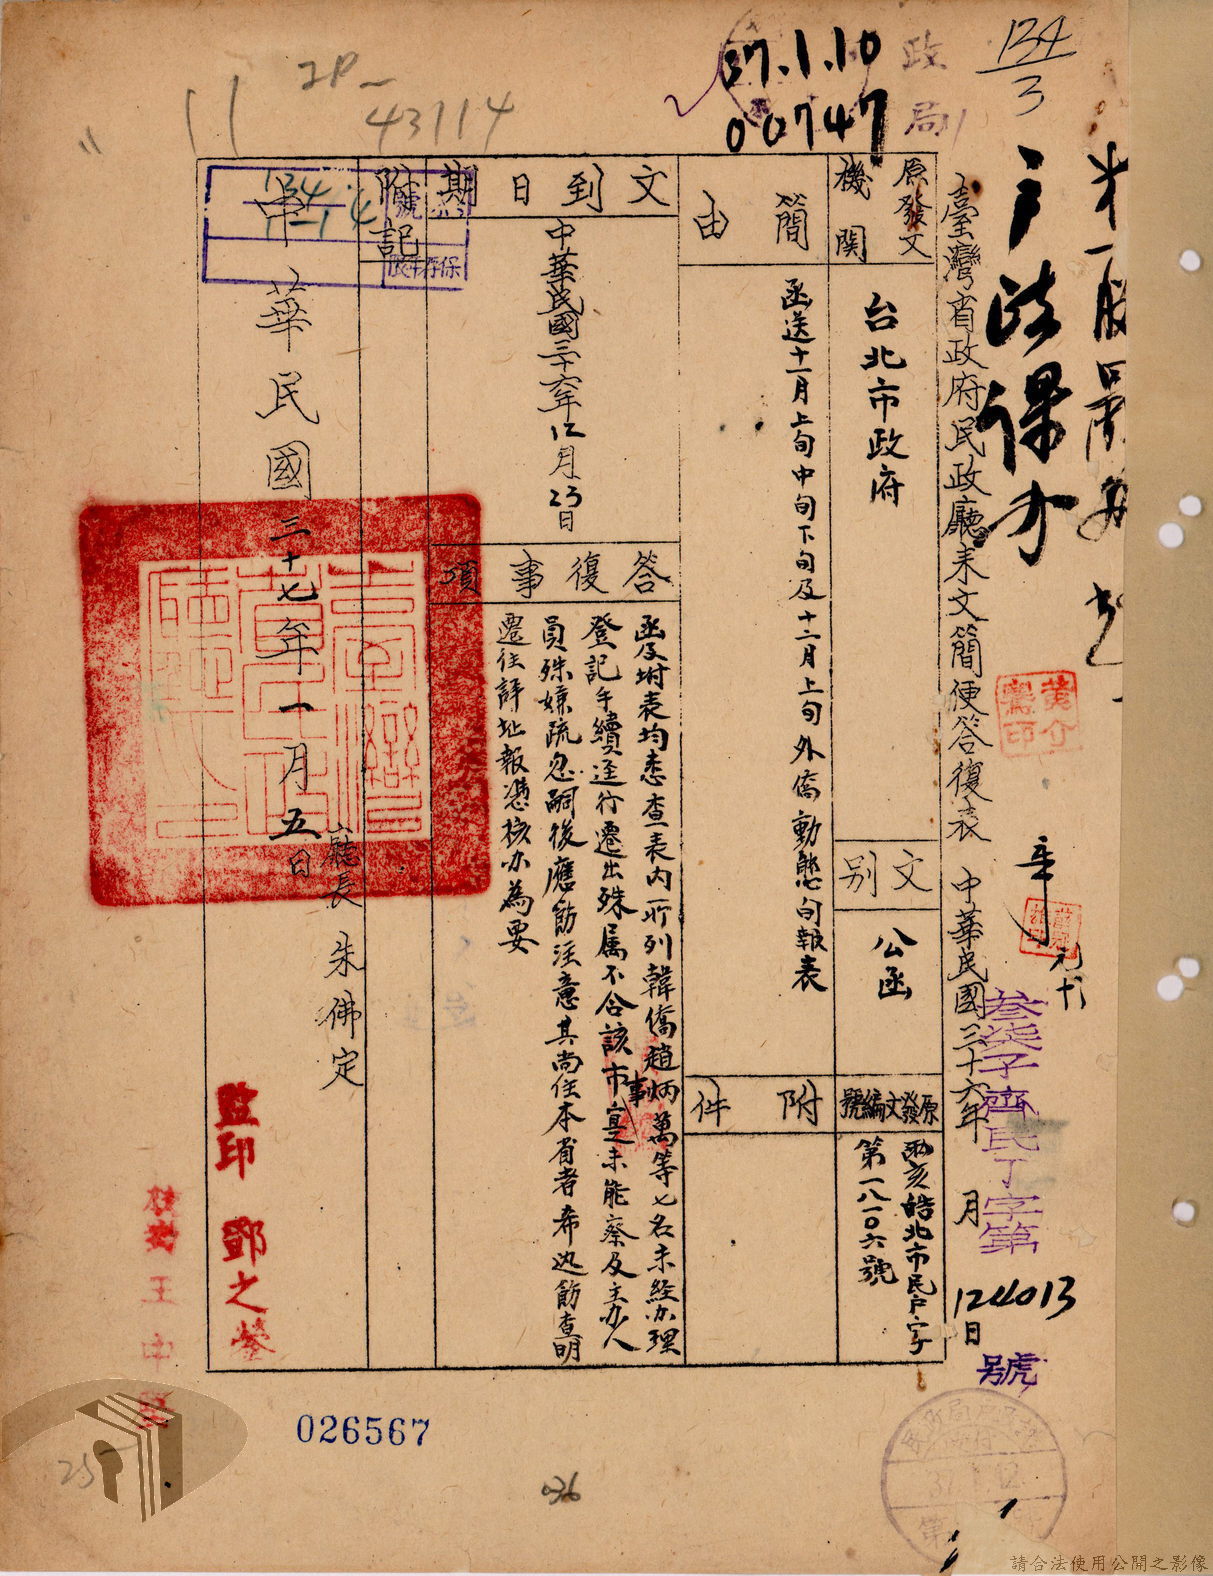 37.1.10
00747
政
局
134
3
2P
11
43114
戶政課 方
臺灣省政府民政廳來文簡便答復表 中華民國三十六年 月 日
叁柒子齊民丁字第
124013
號
原發文機關
台北市政府
文別
公函
原發文編號
兩亥皓北市民戶字
第一八一〇六號
簡由
函送十一月上旬中旬下旬及十二月上旬外僑動態旬報表
附件
文到日期
中華民國三十六年12月23日
答復事項
函及坿表均悉查表內所列韓僑趙炳萬等七名未經办理
登記手續逕行遷出殊属不合該市事宜未能察及主办人
員殊嫌疏忽嗣後應飭注意其尚住本省者希迅飭查明
遷往詳址報憑核办為要
附記
134
號
保存年限
廳長 朱佛定
中華民國三十七年一月五日
監印 鄧之瑩
王中
026567
036
25
請合法使用公開之影像